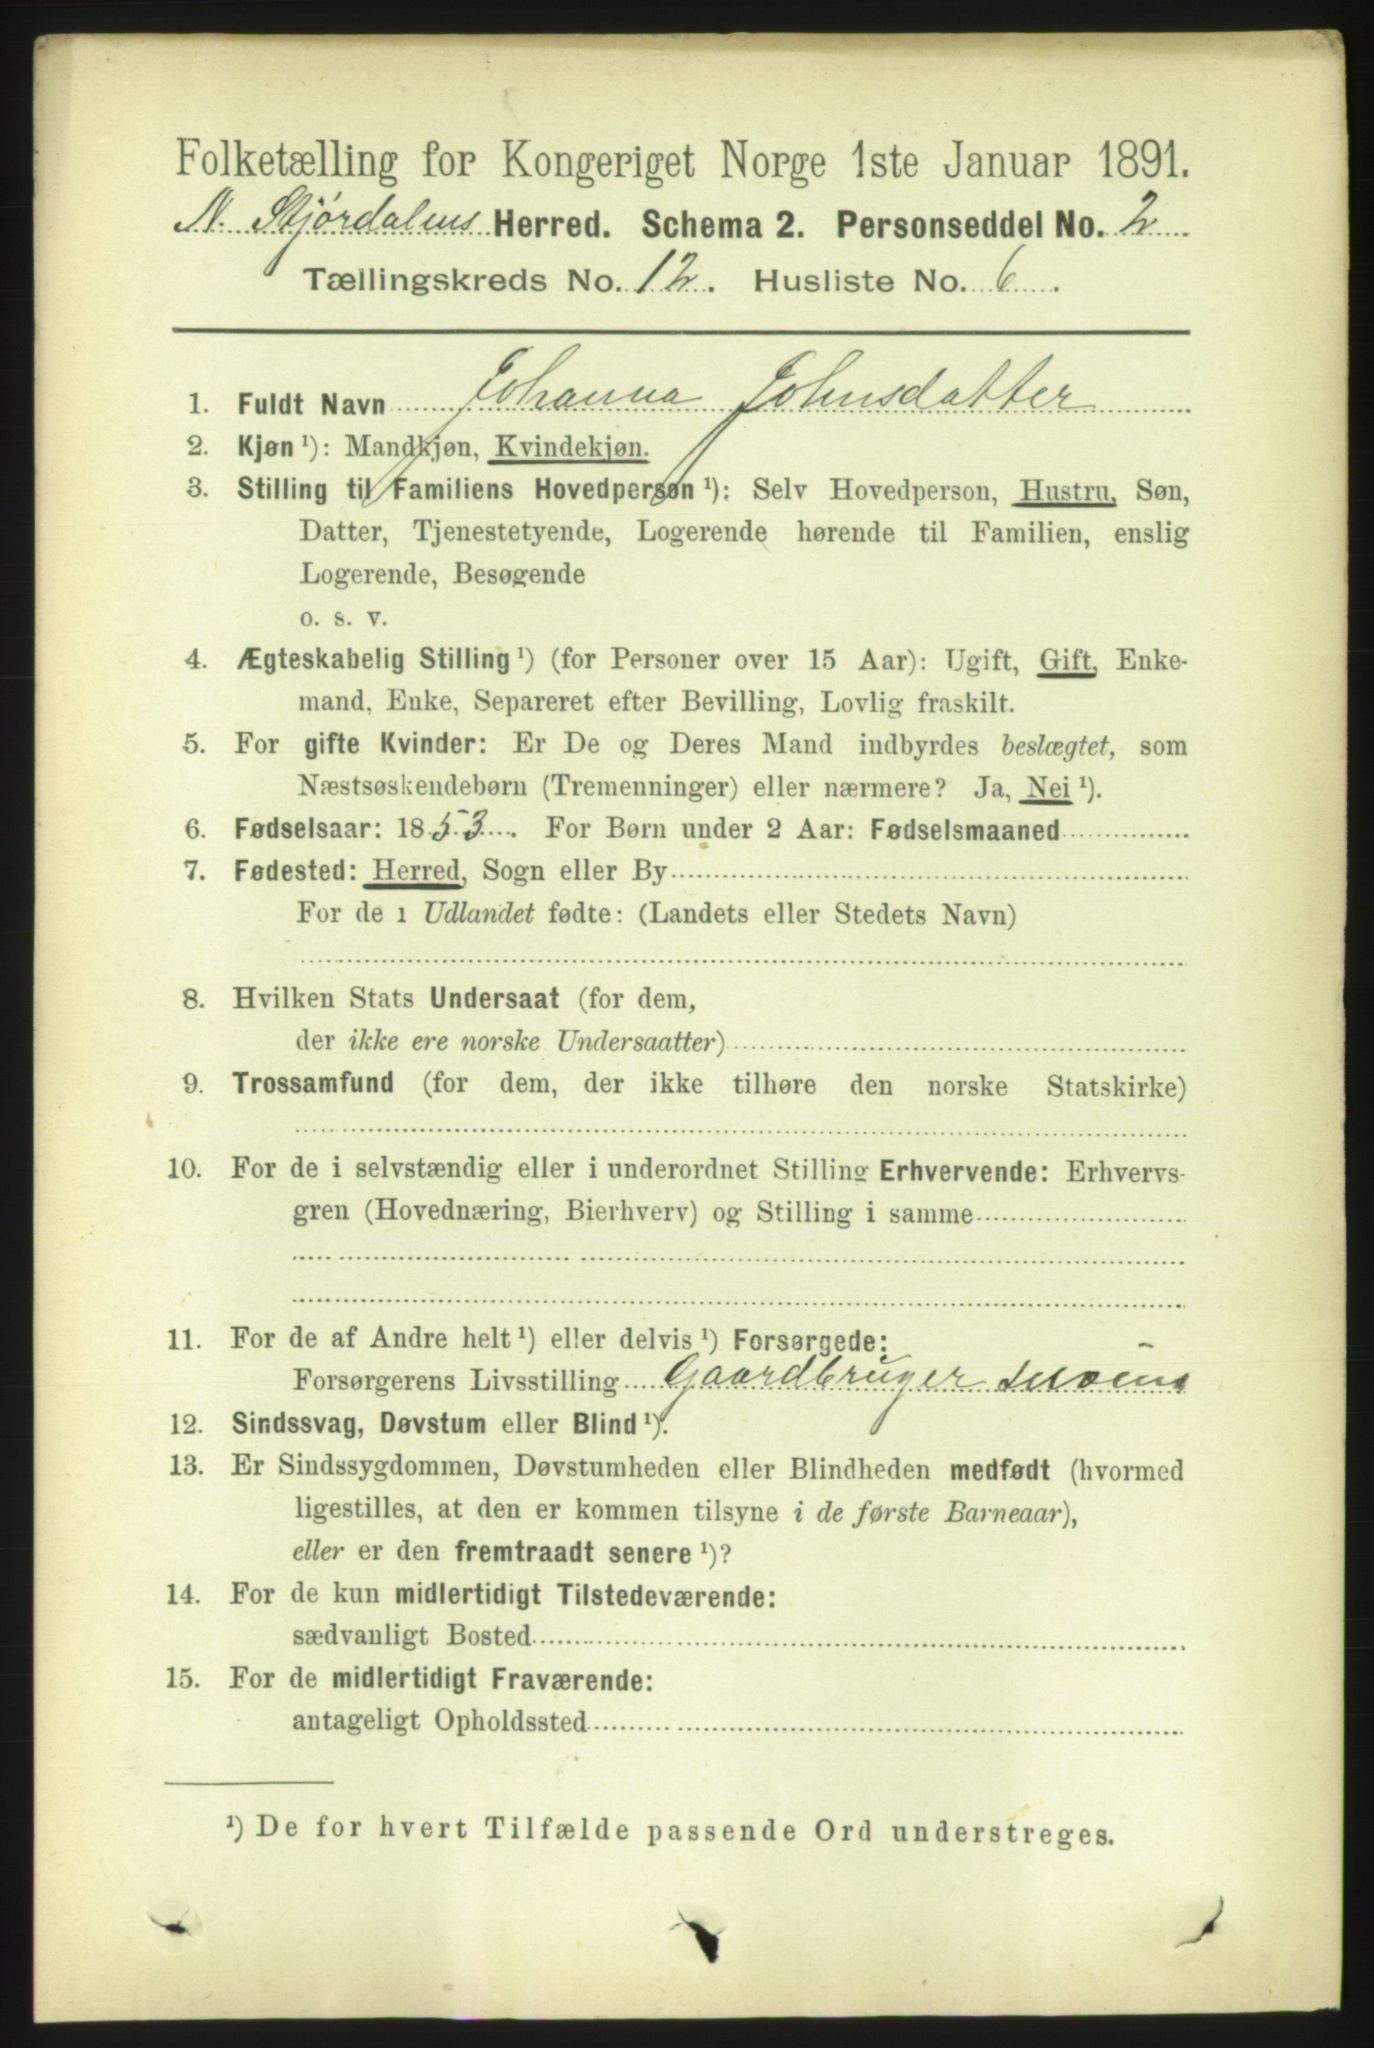 Folketælling for Kongeriget Norge 1ste Januar 1891.
N. Stjørdalens Herred. Schema 2. Personseddel No. 2
Tællingskreds No. 12. Husliste No. 6.
1. Fuldt Navn Johanna Johnsdatter
2. Kjøn ¹): Mandkjøn, Kvindekjøn.
3. Stilling til Familiens Hovedperson ¹): Selv Hovedperson, Hustru, Søn,
Datter, Tjenestetyende, Logerende hørende til Familien, enslig
Logerende, Besøgende
o. s. v.
4. Ægteskabelig Stilling ¹) (for Personer over 15 Aar): Ugift, Gift, Enke-
mand, Enke, Separeret efter Bevilling, Lovlig fraskilt.
5. For gifte Kvinder: Er De og Deres Mand indbyrdes beslægtet, som
Næstsøskendebørn (Tremenninger) eller nærmere? Ja, Nei ¹).
6. Fødselsaar: 1853. For Børn under 2 Aar: Fødselsmaaned
7. Fødested: Herred, Sogn eller By
For de i Udlandet fødte: (Landets eller Stedets Navn)
8. Hvilken Stats Undersaat (for dem,
der ikke ere norske Undersaatter)
9. Trossamfund (for dem, der ikke tilhøre den norske Statskirke)
10. For de i selvstændig eller i underordnet Stilling Erhvervende: Erhvervs-
gren (Hovednæring, Bierhverv) og Stilling i samme
11. For de af Andre helt ¹) eller delvis ¹) Forsørgede:
Forsørgerens Livsstilling Gaardbruger
12. Sindssvag, Døvstum eller Blind ¹).
13. Er Sindssygdommen, Døvstumheden eller Blindheden medfødt (hvormed
ligestilles, at den er kommen tilsyne i de første Barneaar),
eller er den fremtraadt senere ¹)?
14. For de kun midlertidigt Tilstedeværende:
sædvanligt Bosted
15. For de midlertidigt Fraværende:
antageligt Opholdssted
¹) De for hvert Tilfælde passende Ord understreges.